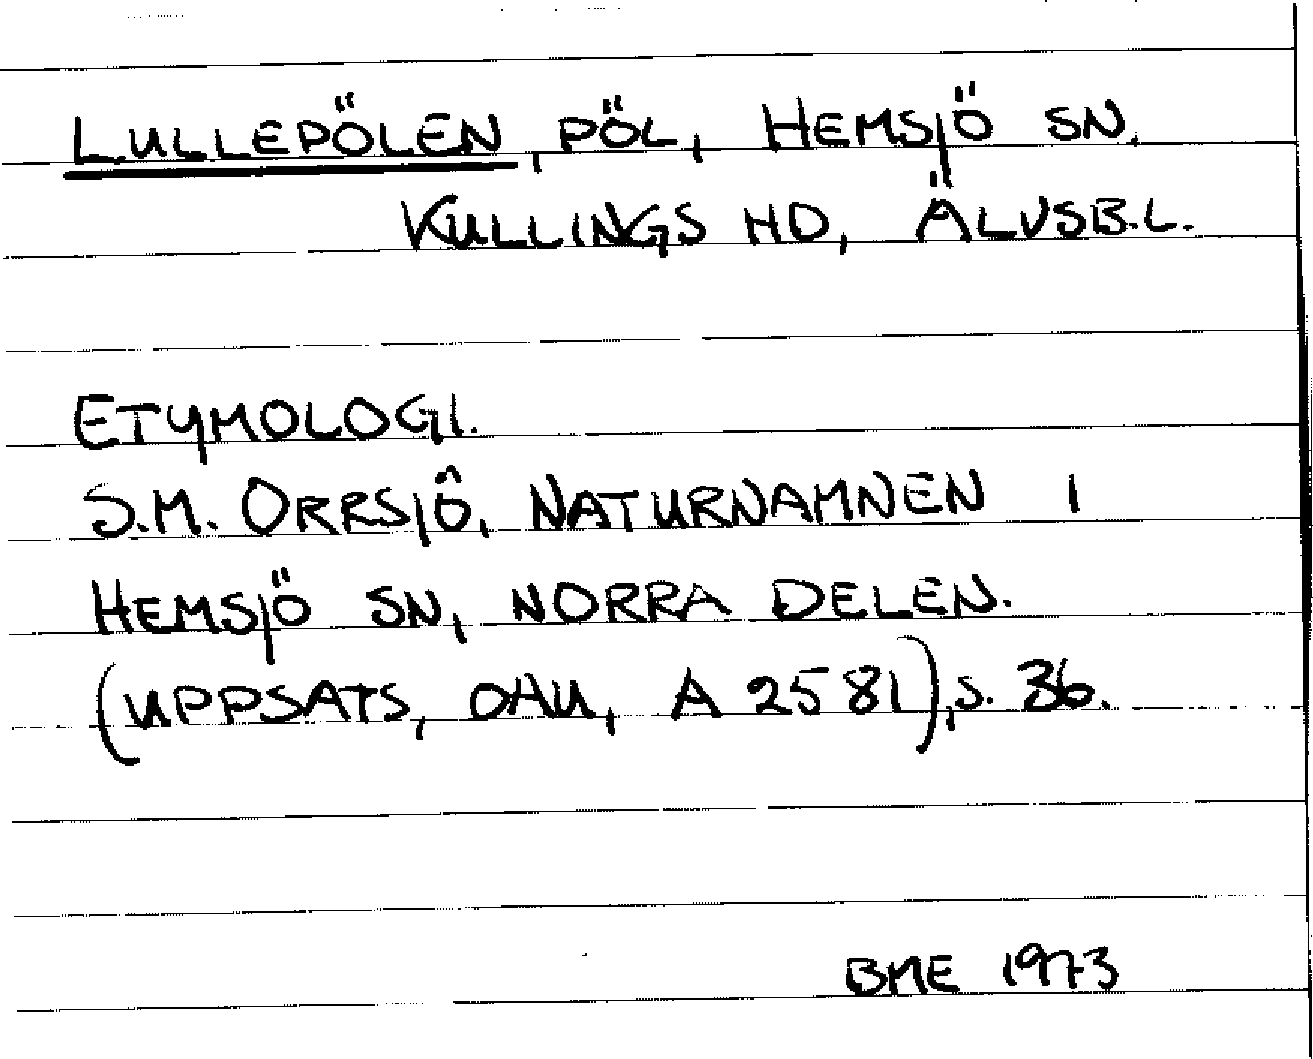 LULLEPÖLEN, PÖL, HEMSJÖ SN,
KULLINGS HD, ÄLVSB.L.
ETYMOLOGI.
S.M. ORRSJÖ, NATURNAMNEN I
HEMSJÖ SN, NORRA DELEN.
(UPPSATS, OAU, A 2581), S. 36.
BME 1973